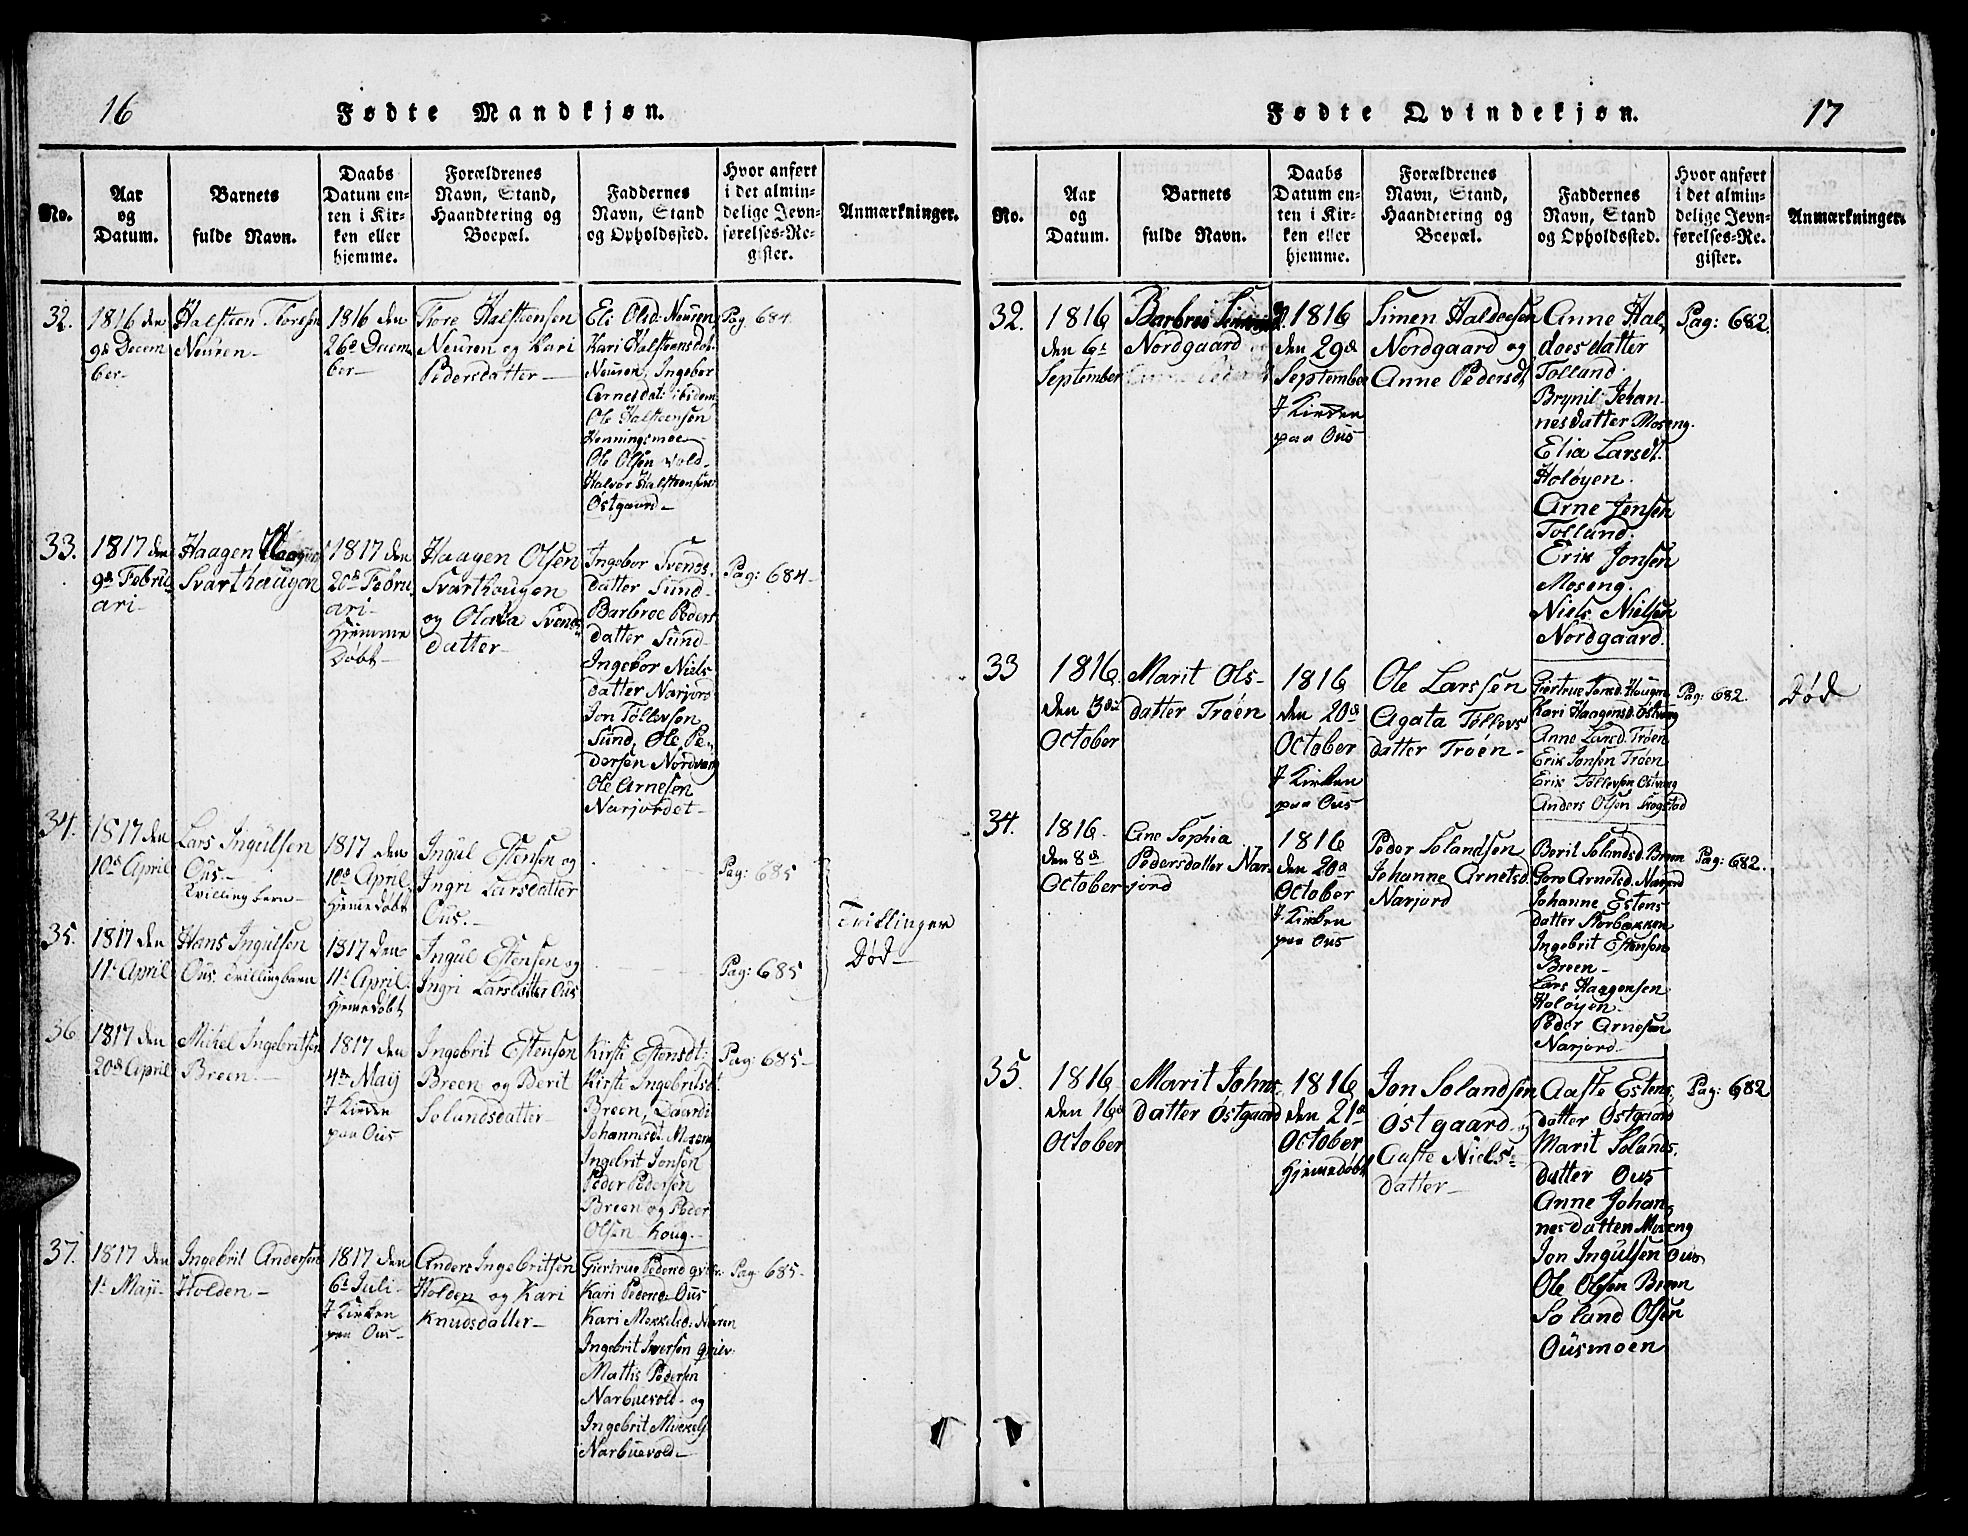 16
Fødte Mandkjøn.
No.
Aar
og
Datum.
Barnets
fulde Navn.
Daabs
Datum en-
ten i Kir-
ken eller
hjemme.
Forældrenes
Navn, Stand,
Haandtering og
Boepæl.
Faddernes
Navn, Stand
og Opholdssted.
Hvor anført
i det almin-
delige Jevn-
førelses-Re-
gister.
Anmærkninger.
32.
1816 den
9de Decem
ber-
Halsteen Toresen
Neuren-
1816 den
26de Decem
ber-
Tore Halsteensen
Neuren og Kari
Pedersdatter-
Eli Olsd: Neuren
Kari Halsteensdat:
Neuren, Ingebor
Arnesdat: ibidem
Ole Halsteensen
Henningsmoe
Ole Olsen Vold-
Halvor Halsteensen
Østgaard-
Pag. 684
33.
1817 den
9de Febru
ari-
Haagen Haagens
Svarthaugen
1817 den
20de Febru
ari-
Hjemme
Døbt-
Haagen Olsen
Svarthougen
og Olava Svends
datter-
Ingebor Svends
datter Sund-
Barbroe Peders
datter Sund-
Ingebor Niels
datter Narjord
Jon Tollevsen
Sund, Ole Pe-
dersen Nordvang
Ole Arnesen
Narjordet-
Pag: 684-
34.
1817 den
10de April
Lars Ingulsen
Ous-
Tvilling barn-
1817 den
10de April
Hjemedøbt
Ingul Estensen og
Ingri Larsdatter
Ous.-
Pag: 685
35.
1817 den
11te April
Hans Ingulsen
Ous. Tvillingbarn
1817 den
11te April.
Hjemedøbt
Ingul Estensen og
Ingri Larsdatter Ous
Pag: 685
Tvillinger
Død-
36
1817 den
20de April
Mikel Ingebritsen
Breen.-
1817 den
4de Maij
I Kirken
paa Ous
Ingebrit Estensen
Breen og Berit
Solandsdatter-
Kirsti Estensdt:
Kirsti Ingebritsdt
Breen,
Johannesdt: Moseng
Ingebrit Jonsen
Peder Pedersen
Breen og Peder
Olsen Houg.-
Pag: 685-
37.
1817 den
1te Maji-
Ingebrit Andersen
Holden-
1817 den
6te Juli-
I Kirken
paa Ous-
Anders Ingebritsen
Holden og Kari
Knudsdatter-
Giertrue Pedersd
Kari Pedersd: Ous
Kari Mekkelsd: Neuren
Ingebrit Iversen
Mattis Pedersen
Narbuevold- og
Ingebrit Mickels
Narbuevold-
Pag: 685-
Fødte Qvindekjøn.
17
No.
Aar
og
Datum.
Barnets
fulde Navn.
Daabs
Datum en-
ten i Kir-
ken eller
hjemme.
Forældrenes
Navn, Stand,
Haandtering og
Boepæl.
Faddernes
Navn, Stand
og Opholdssted.
Hvor anført
i det almin-
delige Jevn-
førelses-Re-
gister.
Anmærkninger.
32.
1816
den 6te
September
Barbroe Simensd.
Nordgaard
1816
den 29de
September
I Kirken
paa Ous
Simen Haldoesen
Nordgaard og
Anne Pedersdt
Anne Hal
does datter
Tolland.
Brynil Johan-
nesdatter Moseng.
Elia Larsdt.
Holøyen.
Arne Jensen
Tolland.
Erik Jonsen
Moseng.
Niels Nielsen
Nordgaard.
Pag: 682.
33
1816
den 3die
October
Marit Ols-
datter Trøen
1816
den 20de
October
I Kirken
paa Ous
Ole Larssen
Agata Tollevs
datter Trøen-
Giertrue Torsd. Haugen
Kari Haagensd. Østvang
Anne Larsd. Trøen
Erik Jonsen Trøen
Erik Tollevsen Ostvang
Anders Olsen Kogstad
Pag: 682.
Død
34.
1816
den 8de
October
Ane Sophia
Pedersdatter Nar-
jord
1816
den 20de
October
I Kirken
paa Ous
Peder Solandsen
Johanne Arnetsd
Narjord
Berit Solandsd. Breen
Goro Arnetsd. Narjord
Johanne Estens
datter Storbækken
Ingebrit Estensen
Breen-
Lars Haagensen
Holøyen-
Peder Arnesen
Narjord-
Pag: 682.
35.
1816
den 16de
October
Marit Johns
datter Østgaard
1816
den 21de
October
Hjemedøbt
Jon Solandsen
Ostgaard- og
Aaste Niels-
datter-
Aaste Estens
datter Østgaard
Marit Solands
datter Ous
Anne Johan
nesdatter Moseng
Jon Ingulsen Ous
Ole Olsen Breen
Soland Olsen
Ousmoen
Pag: 682